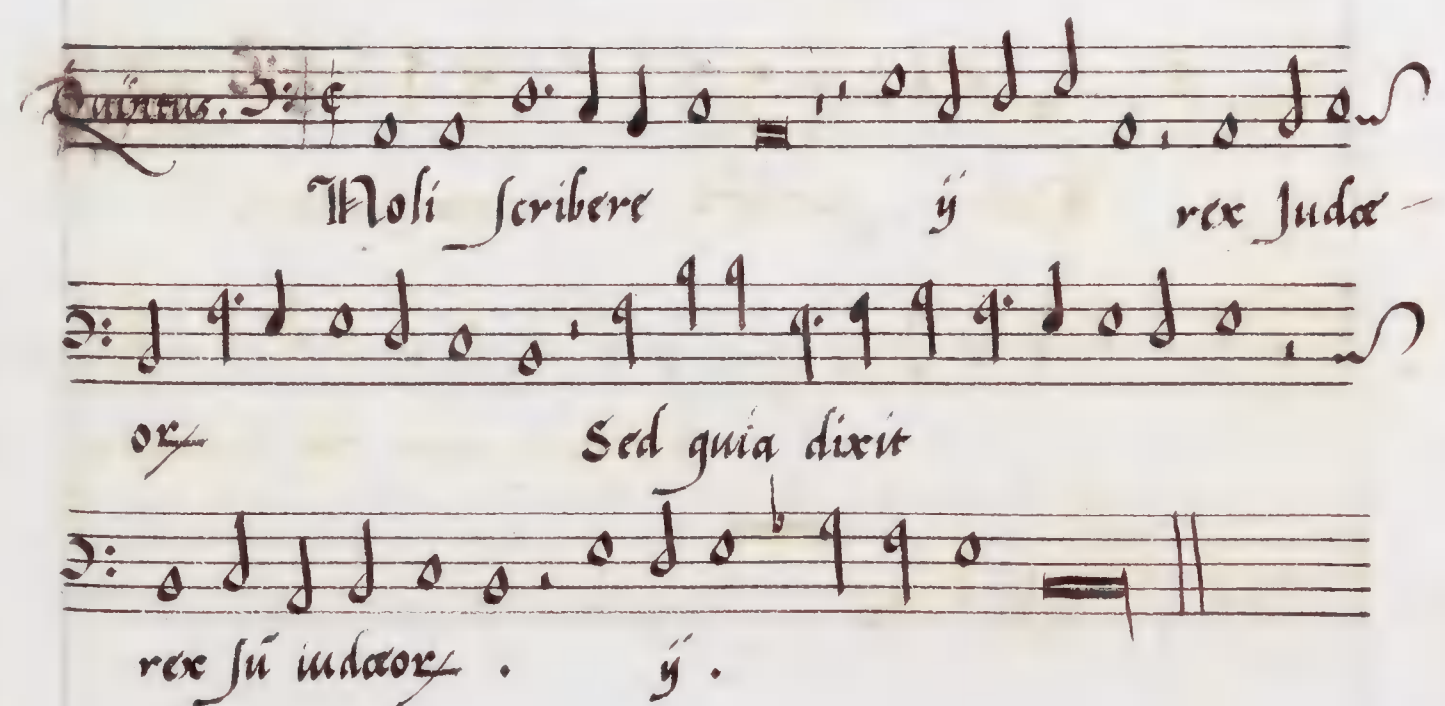 Quintus.
Noli scribere ij rex Judæ-
orꝝ Sed quia dixit
rex sū iudæorꝝ . ij .